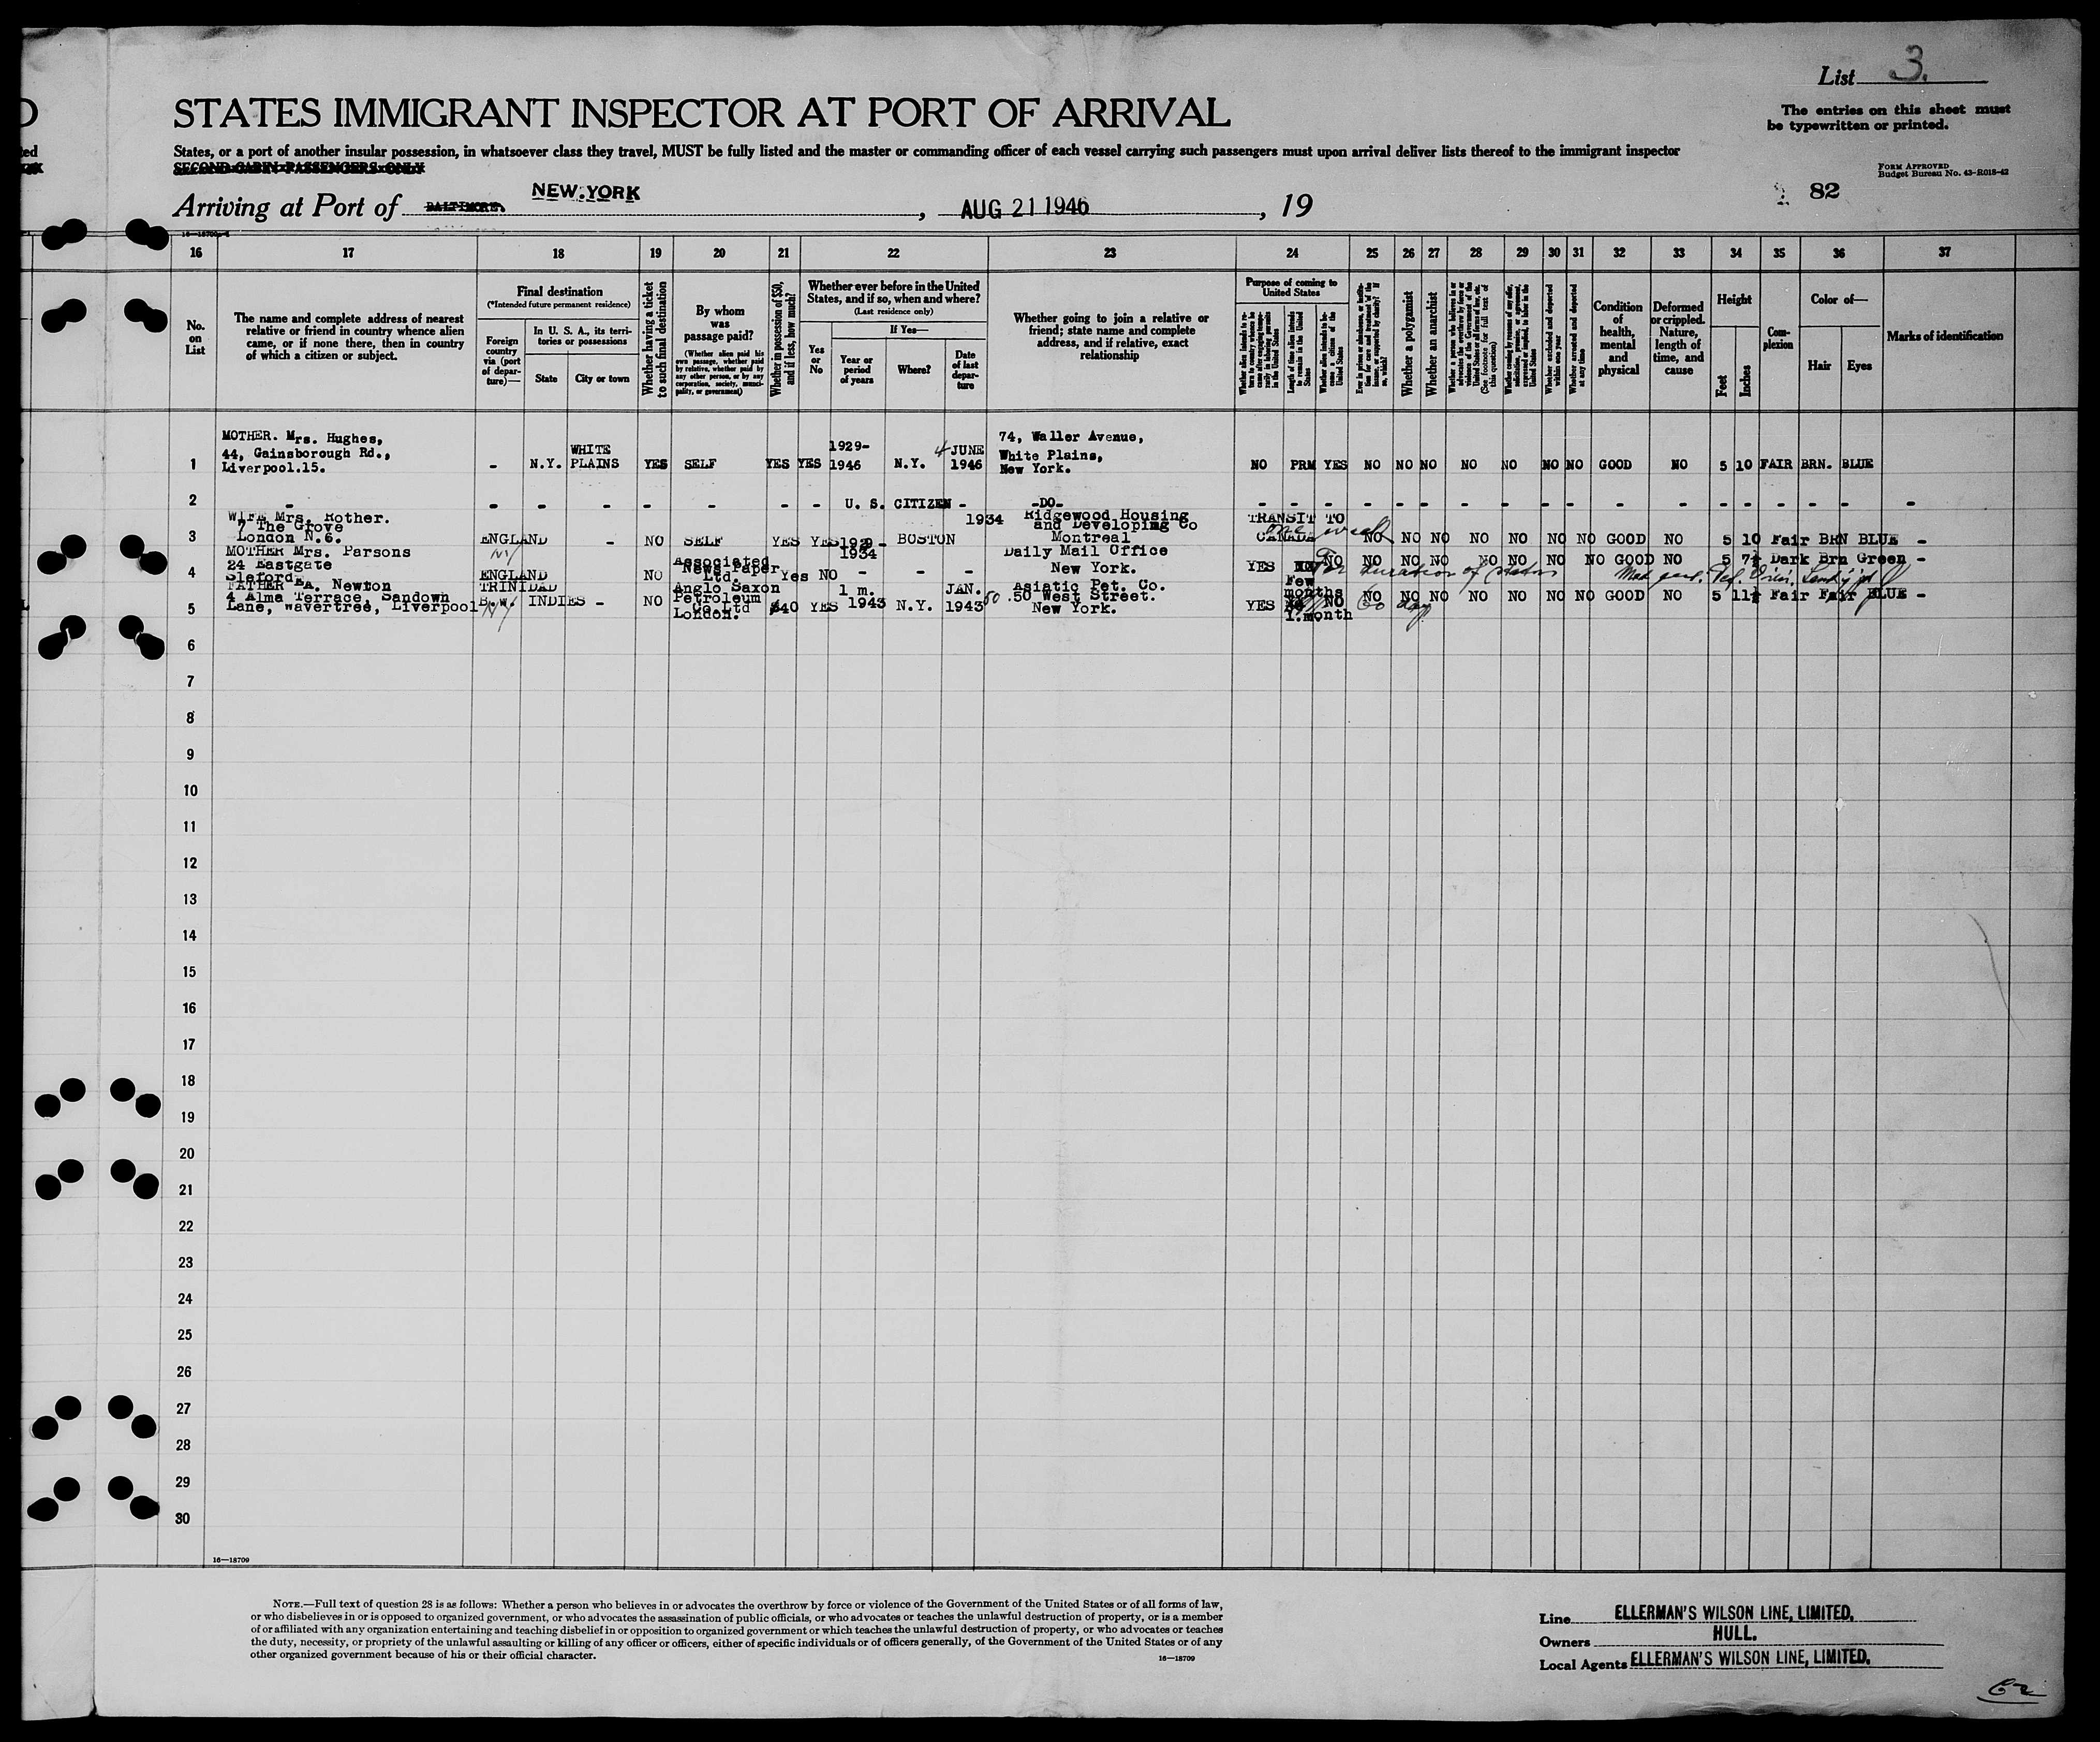 List 3.
The entries on this sheet must
be typewritten or printed.
STATES IMMIGRANT INSPECTOR AT PORT OF ARRIVAL
States, or a port of another insular possession, in whatsoever class they travel, MUST be fully listed and the master or commanding officer of each vessel carrying such passengers must upon arrival deliver lists thereof to the immigrant inspector
SECOND-CABIN PASSENGERS ONLY
FORM APPROVED
Budget Bureau No. 43-R018-42
82
NEW YORK
Arriving at Port of BALTIMORE. , AUG 21 1946 , 19
16 17 18 19 20 21 22 23 24 25 26 27 28 29 30 31 32 33 34 35 36 37
No.
on
List
The name and complete address of nearest
relative or friend in country whence alien
came, or if none there, then in country
of which a citizen or subject.
Final destination
(*Intended future permanent residence)
Foreign
country
via (port
of depar-
ture)—
In U. S. A., its terri-
tories or possessions
State
City or town
Whether having a ticket
to such final destination
By whom
was
passage paid?
(Whether alien paid his
own passage, whether paid
by relative, whether paid by
any other person, or by any
corporation, society, munici-
pality, or government)
Whether in possession of $50,
and if less, how much?
Whether ever before in the United
States, and if so, when and where?
(Last residence only)
Yes
or
No
If Yes—
Year or
period
of years
Where?
Date
of last
depar-
ture
Whether going to join a relative or
friend; state name and complete
address, and if relative, exact
relationship
Purpose of coming to
United States
Length of time alien intends
to remain in the United
States
Whether alien intends to be-
come a citizen of the
United States
Whether a polygamist
Whether an anarchist
Whether excluded and deported
within one year
Whether arrested and deported
at any time
Condition
of
health,
mental
and
physical
Deformed
or crippled.
Nature,
length of
time, and
cause
Height
Feet
Inches
Com-
plexion
Color of—
Hair
Eyes
Marks of identification
MOTHER. Mrs. Hughes,
44, Gainsborough Rd.,
Liverpool.15.
1 - N.Y. WHITE PLAINS YES SELF YES YES 1929-1946 N.Y. 4 JUNE 1946
74, Waller Avenue,
White Plains,
New York.
NO PRM YES NO NO NO NO NO NO NO GOOD NO 5 10 FAIR BRN. BLUE
2 - - - - - - - - U. S. CITIZEN - -DO- - - - - - - - - - - - - - - - - - -
WIFE Mrs. Rother.
7 The Grove
London N.6.
3 ENGLAND - NO SELF YES YES 1929-1934 BOSTON 1934
Ridgewood Housing
and Developing Co
Montreal
TRANSIT TO
CANADA one week NO NO NO NO NO NO NO GOOD NO 5 10 Fair BRN BLUE -
MOTHER Mrs. Parsons
24 Eastgate
Sleford
4 NY ENGLAND NO
Associated
News Paper
Ltd.
Yes NO - - -
Daily Mail Office
New York.
YES NO NO NO NO NO NO NO NO GOOD NO 5 7½ Dark Brn Green -
For duration of status
FATHER EA. Newton
4 Alma Terrace, Sandown
Lane, Wavertree, Liverpool
5 TRINIDAD
B.W. INDIES - NY NO
Anglo Saxon
Petroleum
Co Ltd
London.
$40 YES 1 m. 1943 N.Y. JAN. 1943
Asiatic Pet. Co.
50 50 West Street.
New York.
YES Few
months
1.month
NO NO NO NO NO NO NO NO GOOD NO 5 11½ Fair Fair BLUE -
60 days
6
7
8
9
10
11
12
13
14
15
16
17
18
19
20
21
22
23
24
25
26
27
28
29
30
16—18709
NOTE.—Full text of question 28 is as follows: Whether a person who believes in or advocates the overthrow by force or violence of the Government of the United States or of all forms of law,
or who disbelieves in or is opposed to organized government, or who advocates the assassination of public officials, or who advocates or teaches the unlawful destruction of property, or is a member
of or affiliated with any organization entertaining and teaching disbelief in or opposition to organized government or which teaches the unlawful destruction of property, or who advocates or teaches
the duty, necessity, or propriety of the unlawful assaulting or killing of any officer or officers, either of specific individuals or of officers generally, of the Government of the United States or of any
other organized government because of his or their official character.
16—18709
Line ELLERMAN'S WILSON LINE, LIMITED.
Owners HULL.
Local Agents ELLERMAN'S WILSON LINE, LIMITED.